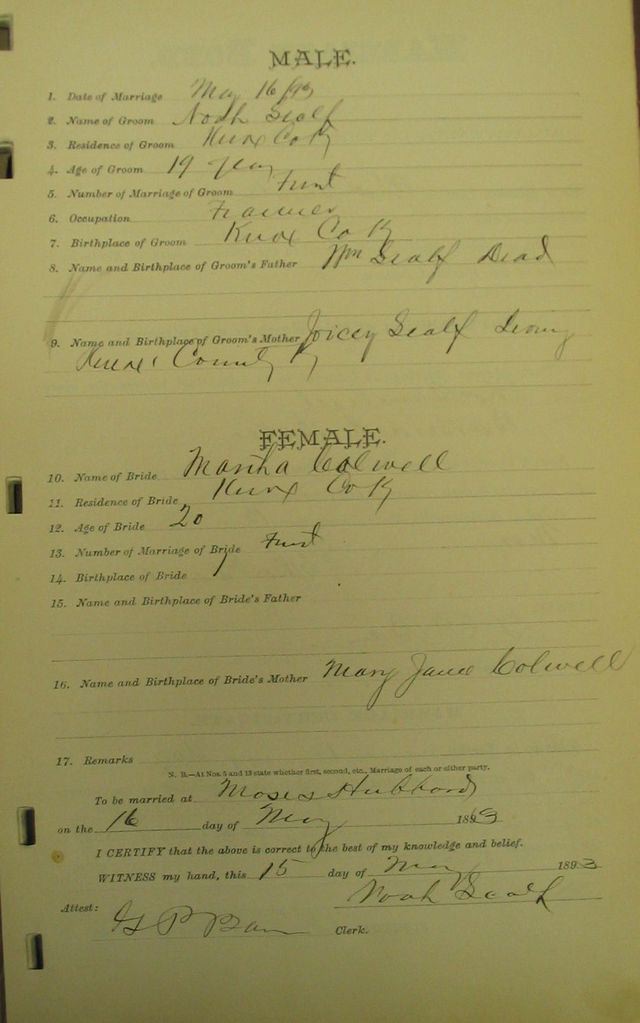 MALE.
1. Date of Marriage May 16/93
2. Name of Groom Noah Sealf
3. Residence of Groom Knox Co Ky
4. Age of Groom 19 years
5. Number of Marriage of Groom First
6. Occupation Farmer
7. Birthplace of Groom Knox Co Ky
8. Name and Birthplace of Groom's Father Wm Sealf Dead
9. Name and Birthplace of Groom's Mother Joicey Sealf Living
Knox County Ky
FEMALE.
10. Name of Bride Martha Colwell
11. Residence of Bride Knox Co Ky
12. Age of Bride 20
13. Number of Marriage of Bride First
14. Birthplace of Bride
15. Name and Birthplace of Bride's Father
16. Name and Birthplace of Bride's Mother Mary Jane Colwell
17. Remarks
N. B.—At Nos. 5 and 13 state whether first, second, etc., Marriage of each or either party.
To be married at Moses Hubbards
on the 16 day of May 1893
I CERTIFY that the above is correct to the best of my knowledge and belief.
WITNESS my hand, this 15 day of May 1893
Noah Sealf
Attest: G P Clerk.